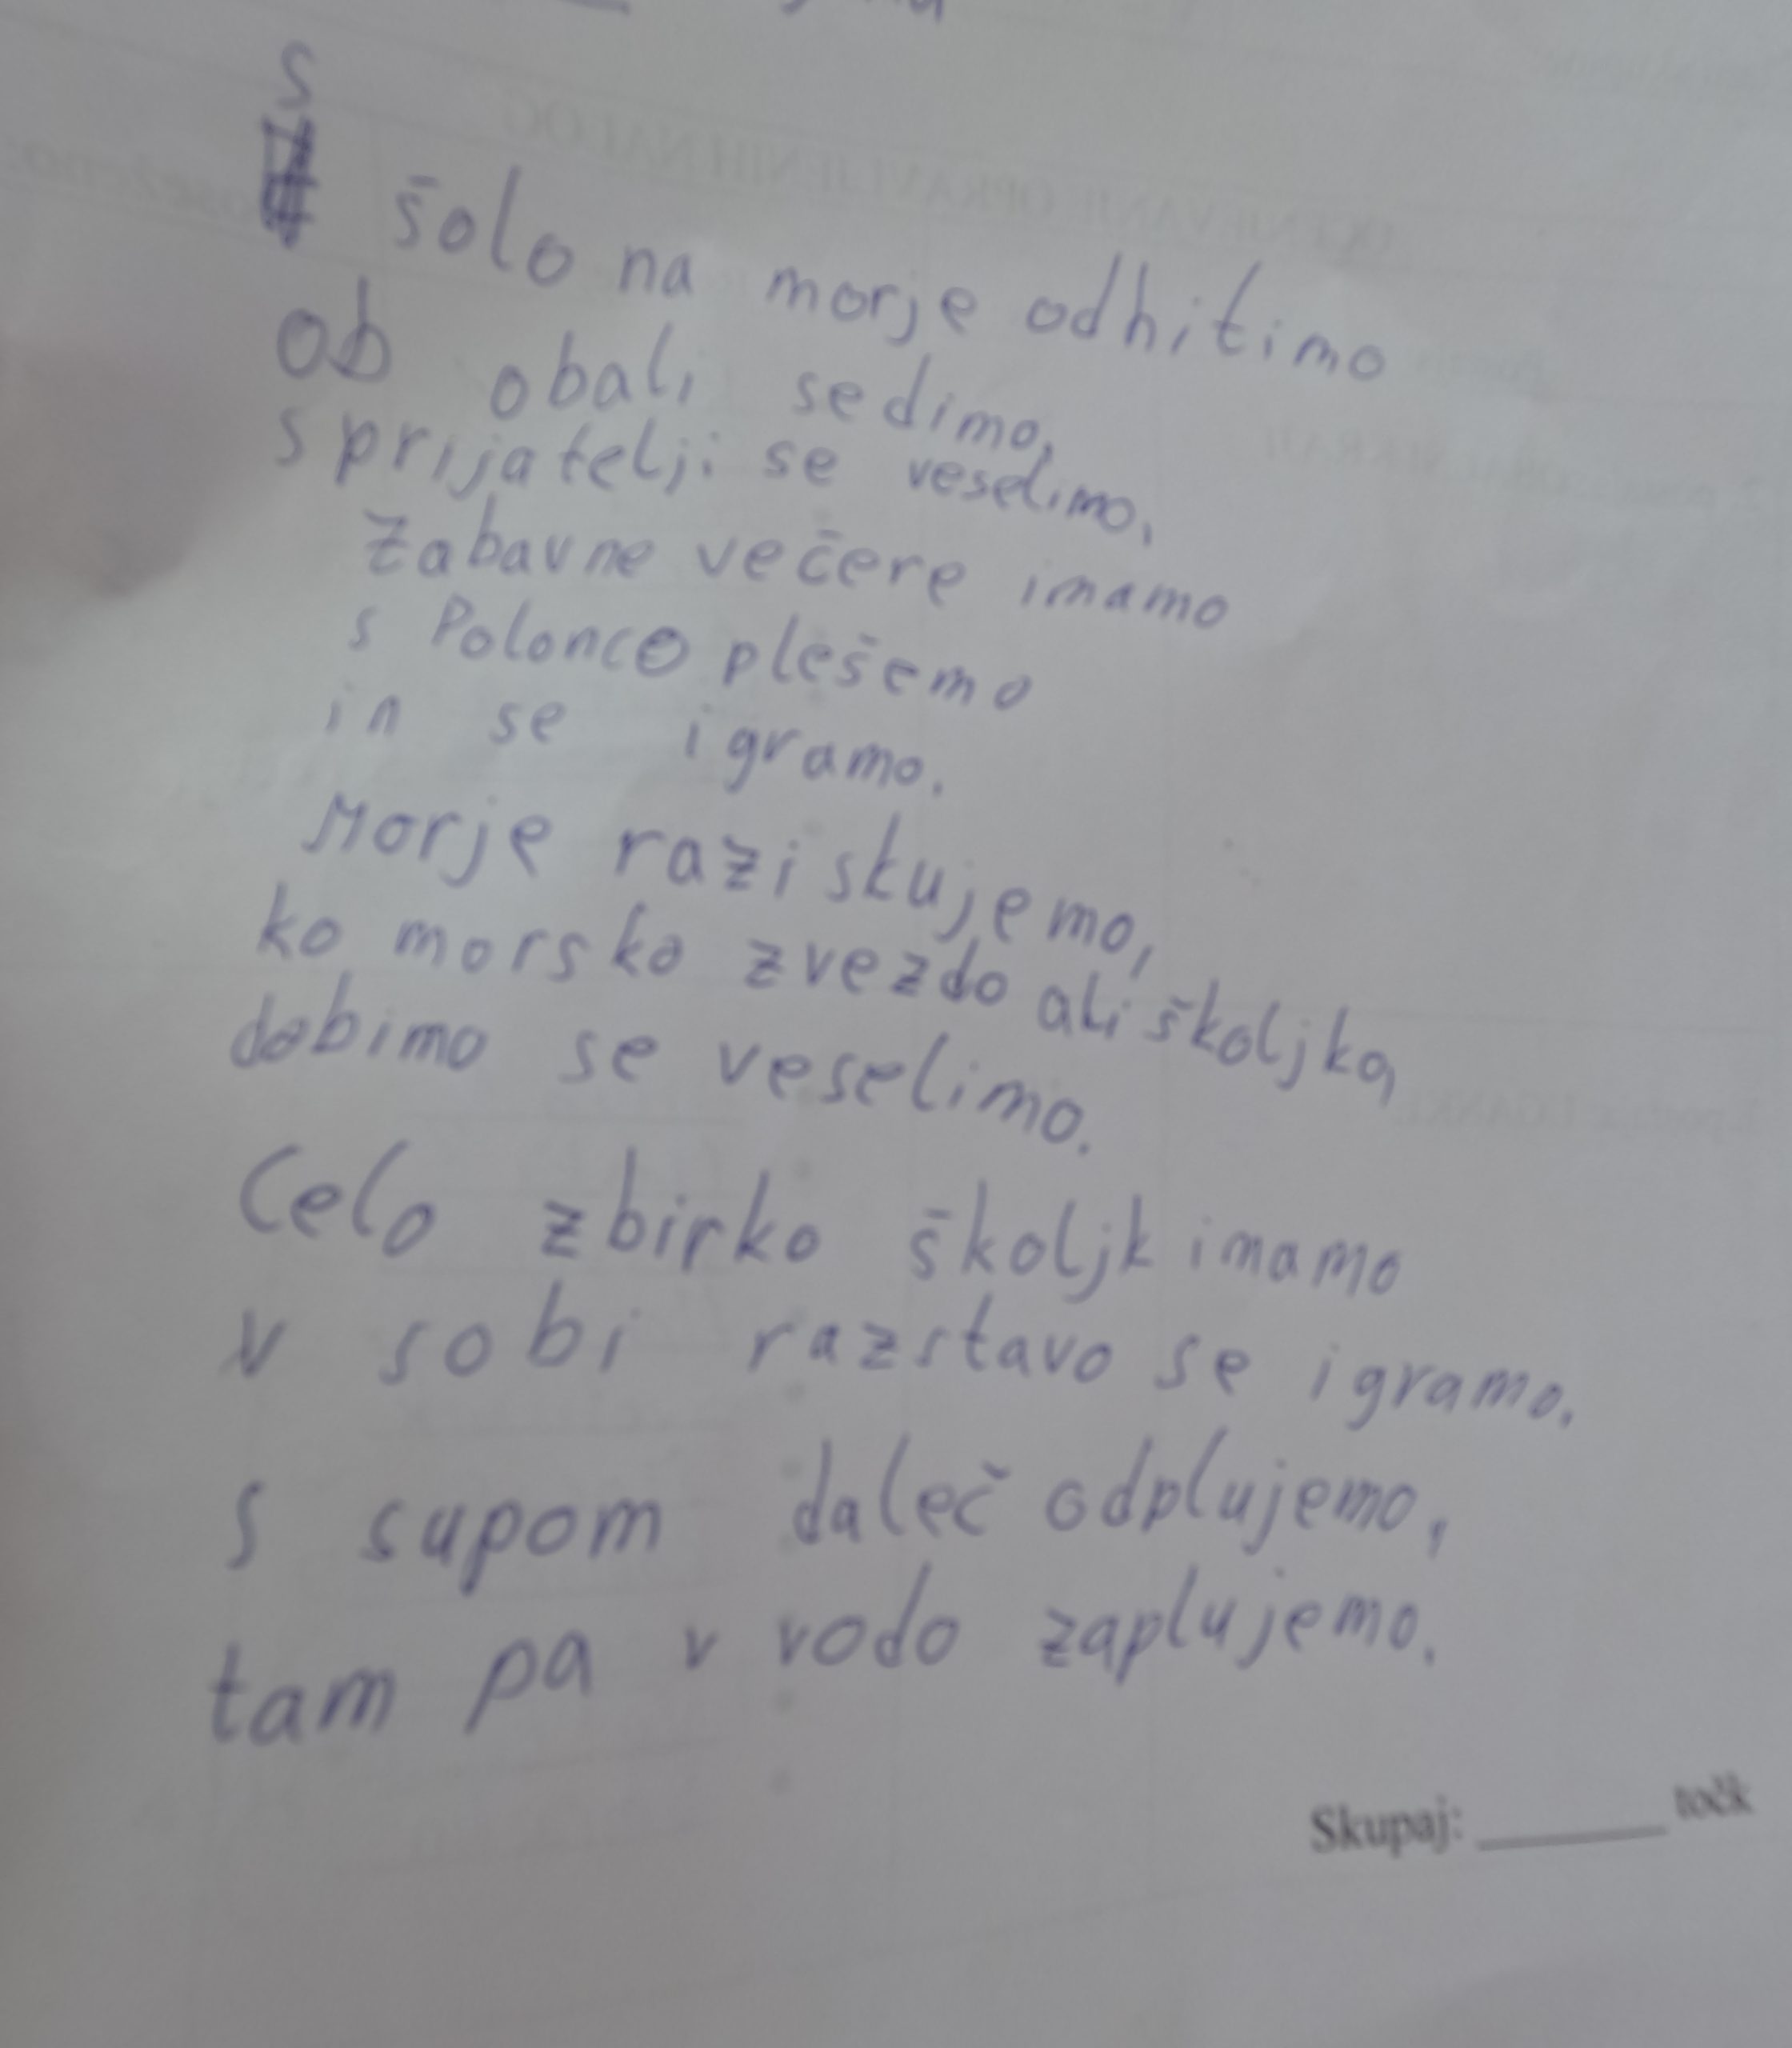 S
šolo na morje odhitimo
ob obali sedimo,
s prijatelji se veselimo,
Zabavne večere imamo
s Polonco plešemo
in se igramo.
Morje raziskujemo,
ko morsko zvezdo ali školjko,
dobimo se veselimo.
Celo zbirko školjk imamo
v sobi razstavo se igramo.
S supom daleč odplujemo,
tam pa v vodo zaplujemo.
Skupaj: ______ točk